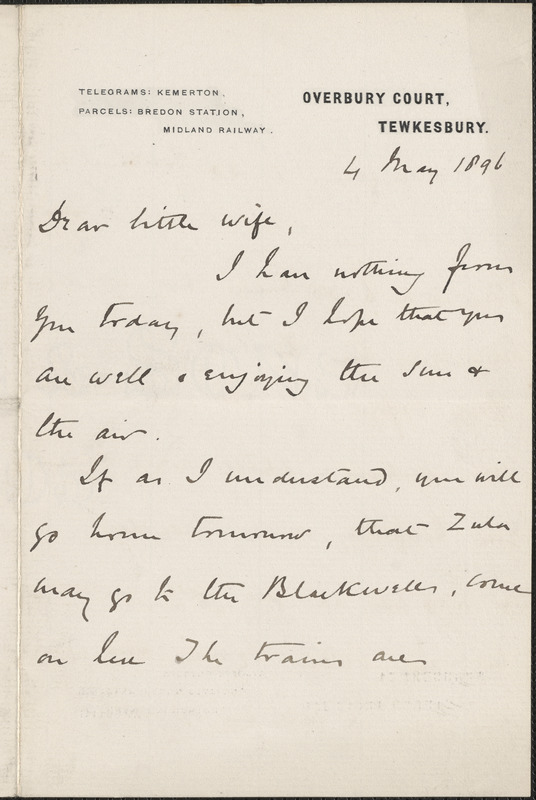 TELEGRAMS: KEMERTON,
PARCELS: BREDON STATION,
MIDLAND RAILWAY.
OVERBURY COURT,
TEWKESBURY.
4 May 1896
Dear little wife,
I have nothing from
you today, but I hope that you
are well & enjoying the sun &
the air.
If as I understand, you will
go home tomorrow, that Zula
may go to the Blackwells, come
on here The trains are